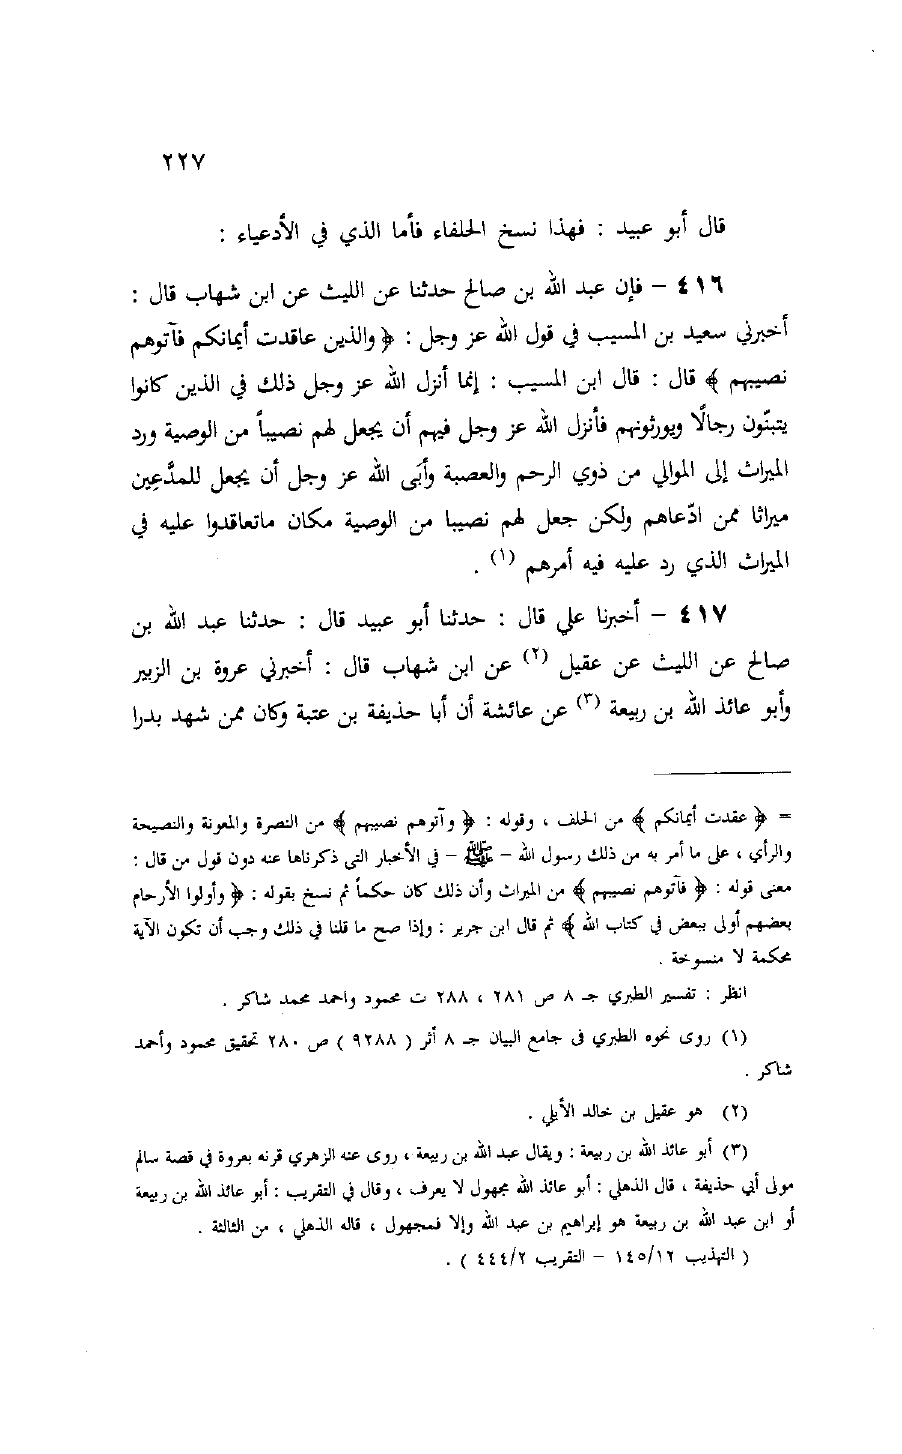 ٢٢٧
قال أبو عبيد : فهذا نسخ الحلفاء فأما الذي في الأدعياء :
٤١٦ – فإن عبد الله بن صالح حدثنا عن الليث عن ابن شهاب قال :
أخبرني سعيد بن المسيب في قول الله عز وجل : ﴿ والذين عاقدت أيمانكم فآتوهم
نصيبهم ﴾ قال : قال ابن المسيب : إنما أنزل الله عز وجل ذلك في الذين كانوا
يتبنّون رجالًا ويورثونهم فأنزل الله عز وجل فيهم أن يجعل لهم نصيباً من الوصية ورد
الميراث إلى الموالي من ذوي الرحم والعصبة وأبَى الله عز وجل أن يجعل للمدَّعِين
ميراثا ممن ادّعاهم ولكن جعل لهم نصيبا من الوصية مكان ماتعاقدوا عليه في
الميراث الذي رد عليه فيه أمرهم (١) .
٤١٧ – أخبرنا علي قال : حدثنا أبو عبيد قال : حدثنا عبد الله بن
صالح عن الليث عن عقيل (٢) عن ابن شهاب قال : أخبرني عروة بن الزبير
وأبو عائذ الله بن ربيعة (٣) عن عائشة أن أبا حذيفة بن عتبة وكان ممن شهد بدرا
= ﴿ عقدت أيمانكم ﴾ من الحلف ، وقوله : ﴿ وآتوهم نصيبهم ﴾ من النصرة والمعونة والنصيحة
والرأي ، على ما أمر به من ذلك رسول الله – ﷺ – في الأخبار التى ذكرناها عنه دون قول من قال :
معنى قوله : ﴿ فآتوهم نصيبهم ﴾ من الميراث وأن ذلك كان حكماً ثم نسخ بقوله : ﴿ وأولوا الأرحام
بعضهم أولى ببعض في كتاب الله ﴾ ثم قال ابن جرير : وإذا صح ما قلنا في ذلك وجب أن تكون الآية
محكمة لا منسوخة .
انظر : تفسير الطبري جـ ٨ ص ٢٨١ ، ٢٨٨ ت محمود واحمد محمد شاكر .
(١) روى نحوه الطبري فى جامع البيان جـ ٨ أثر ( ٩٢٨٨ ) ص ٢٨٠ تحقيق محمود وأحمد
شاكر .
(٢) هو عقيل بن خالد الأيلي .
(٣) أبو عائذ الله بن ربيعة : ويقال عبد الله بن ربيعة ، روى عنه الزهري قرنه بعروة في قصة سالم
مولى أبي حذيفة ، قال الذهلي : أبو عائذ الله مجهول لا يعرف ، وقال في التقريب : أبو عائذ الله بن ربيعة
أو ابن عبد الله بن ربيعة هو إبراهيم بن عبد الله وإلا فمجهول ، قاله الذهلي ، من الثالثة .
( التهذيب ١٤٥/١٢ – التقريب ٤٤٤/٢ ) .